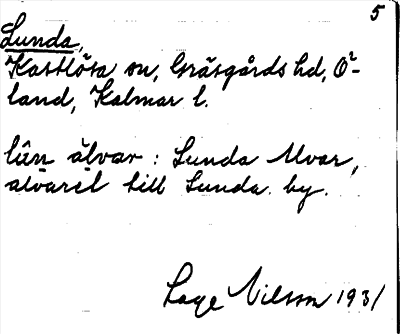 5
Lunda,
Kastlösa sn, Gräsgårds hd, Ö-
land, Kalmar l.
lūn älvar : Lunda Alvar,
alvaret till Lunda by.
Lage Nilsson 1931